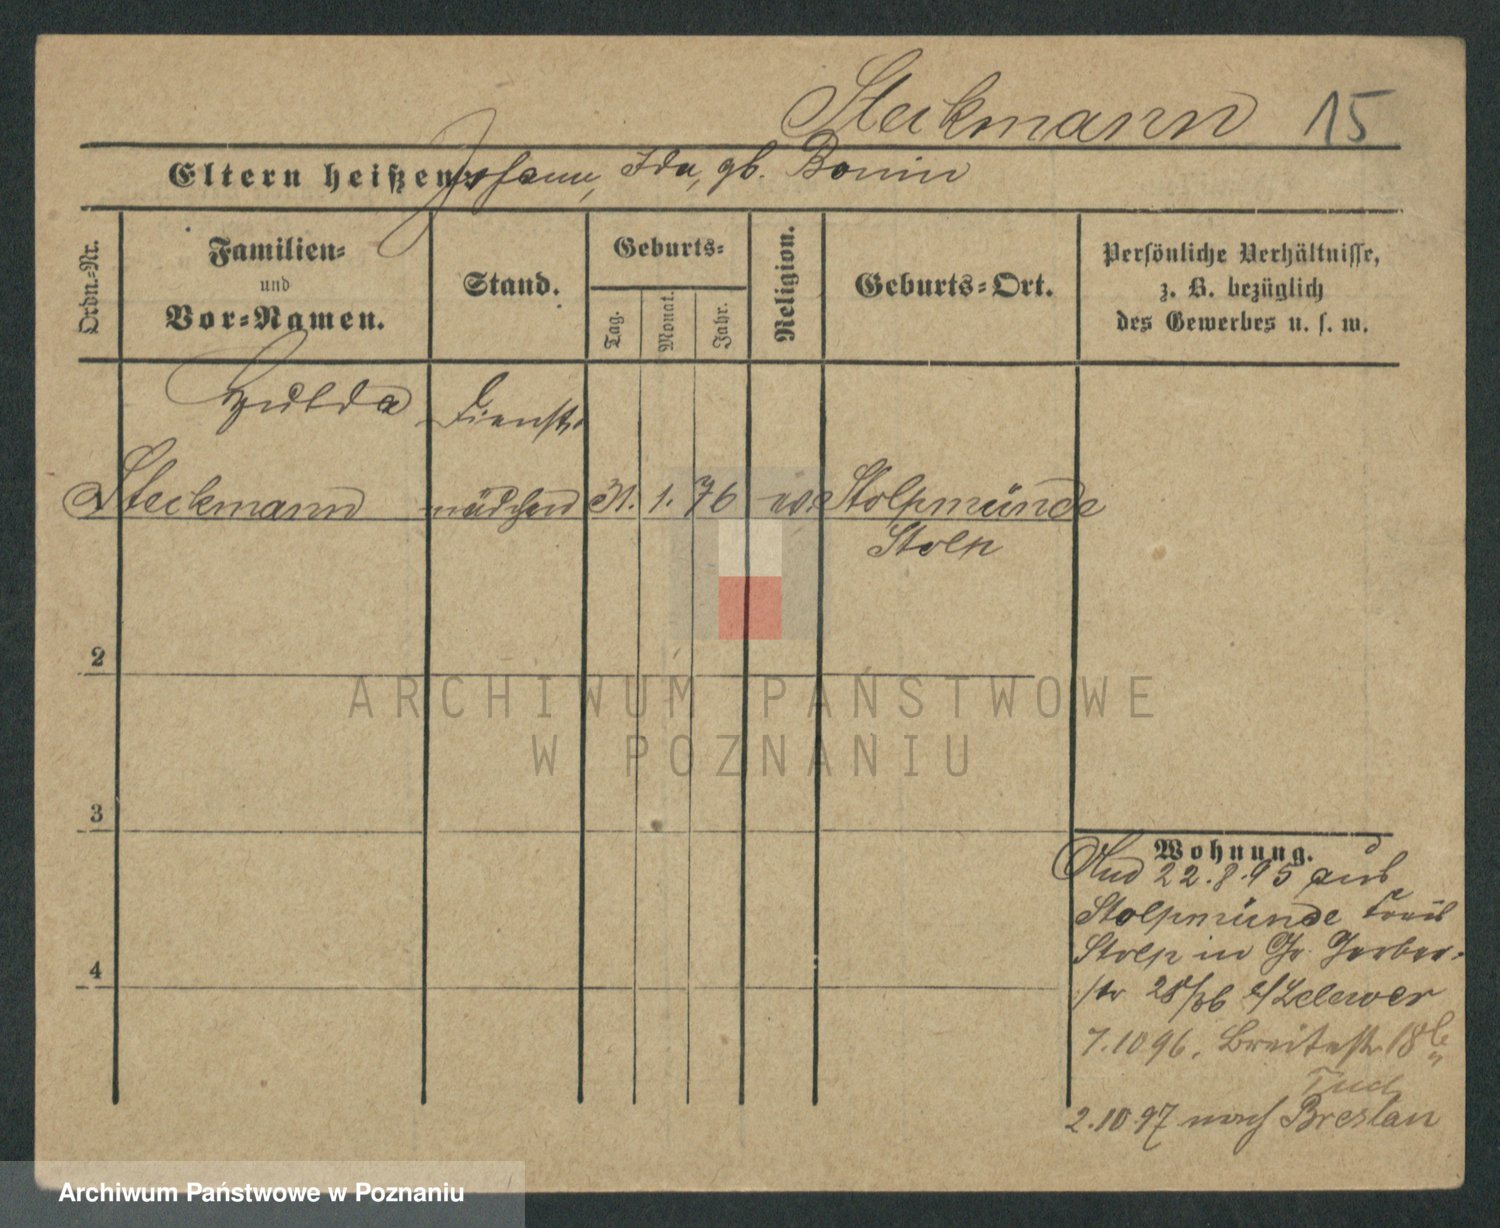 Steckmann 15
Eltern heißen: Johann, Ida, gb. Bonin
Ordn.-Nr.
Familien-
und
Vor-Namen.
Stand.
Geburts-
Tag.
Monat.
Jahr.
Religion.
Geburts-Ort.
Persönliche Verhältnisse,
z. B. bezüglich
des Gewerbes u. s. w.
Hulda Dienst-
Steckmann mädchen 31. 1. 76 ev. Stolpmünde
Stolp
2
ARCHIWUM PAŃSTWOWE
W POZNANIU
3
Wohnung.
22.8.95 aus
Stolpmünde Kreis
Stolp in Gr. Gerber-
str
7.10 96. Breitestr 18
2.10.97 nach Breslau
4
Archiwum Państwowe w Poznaniu